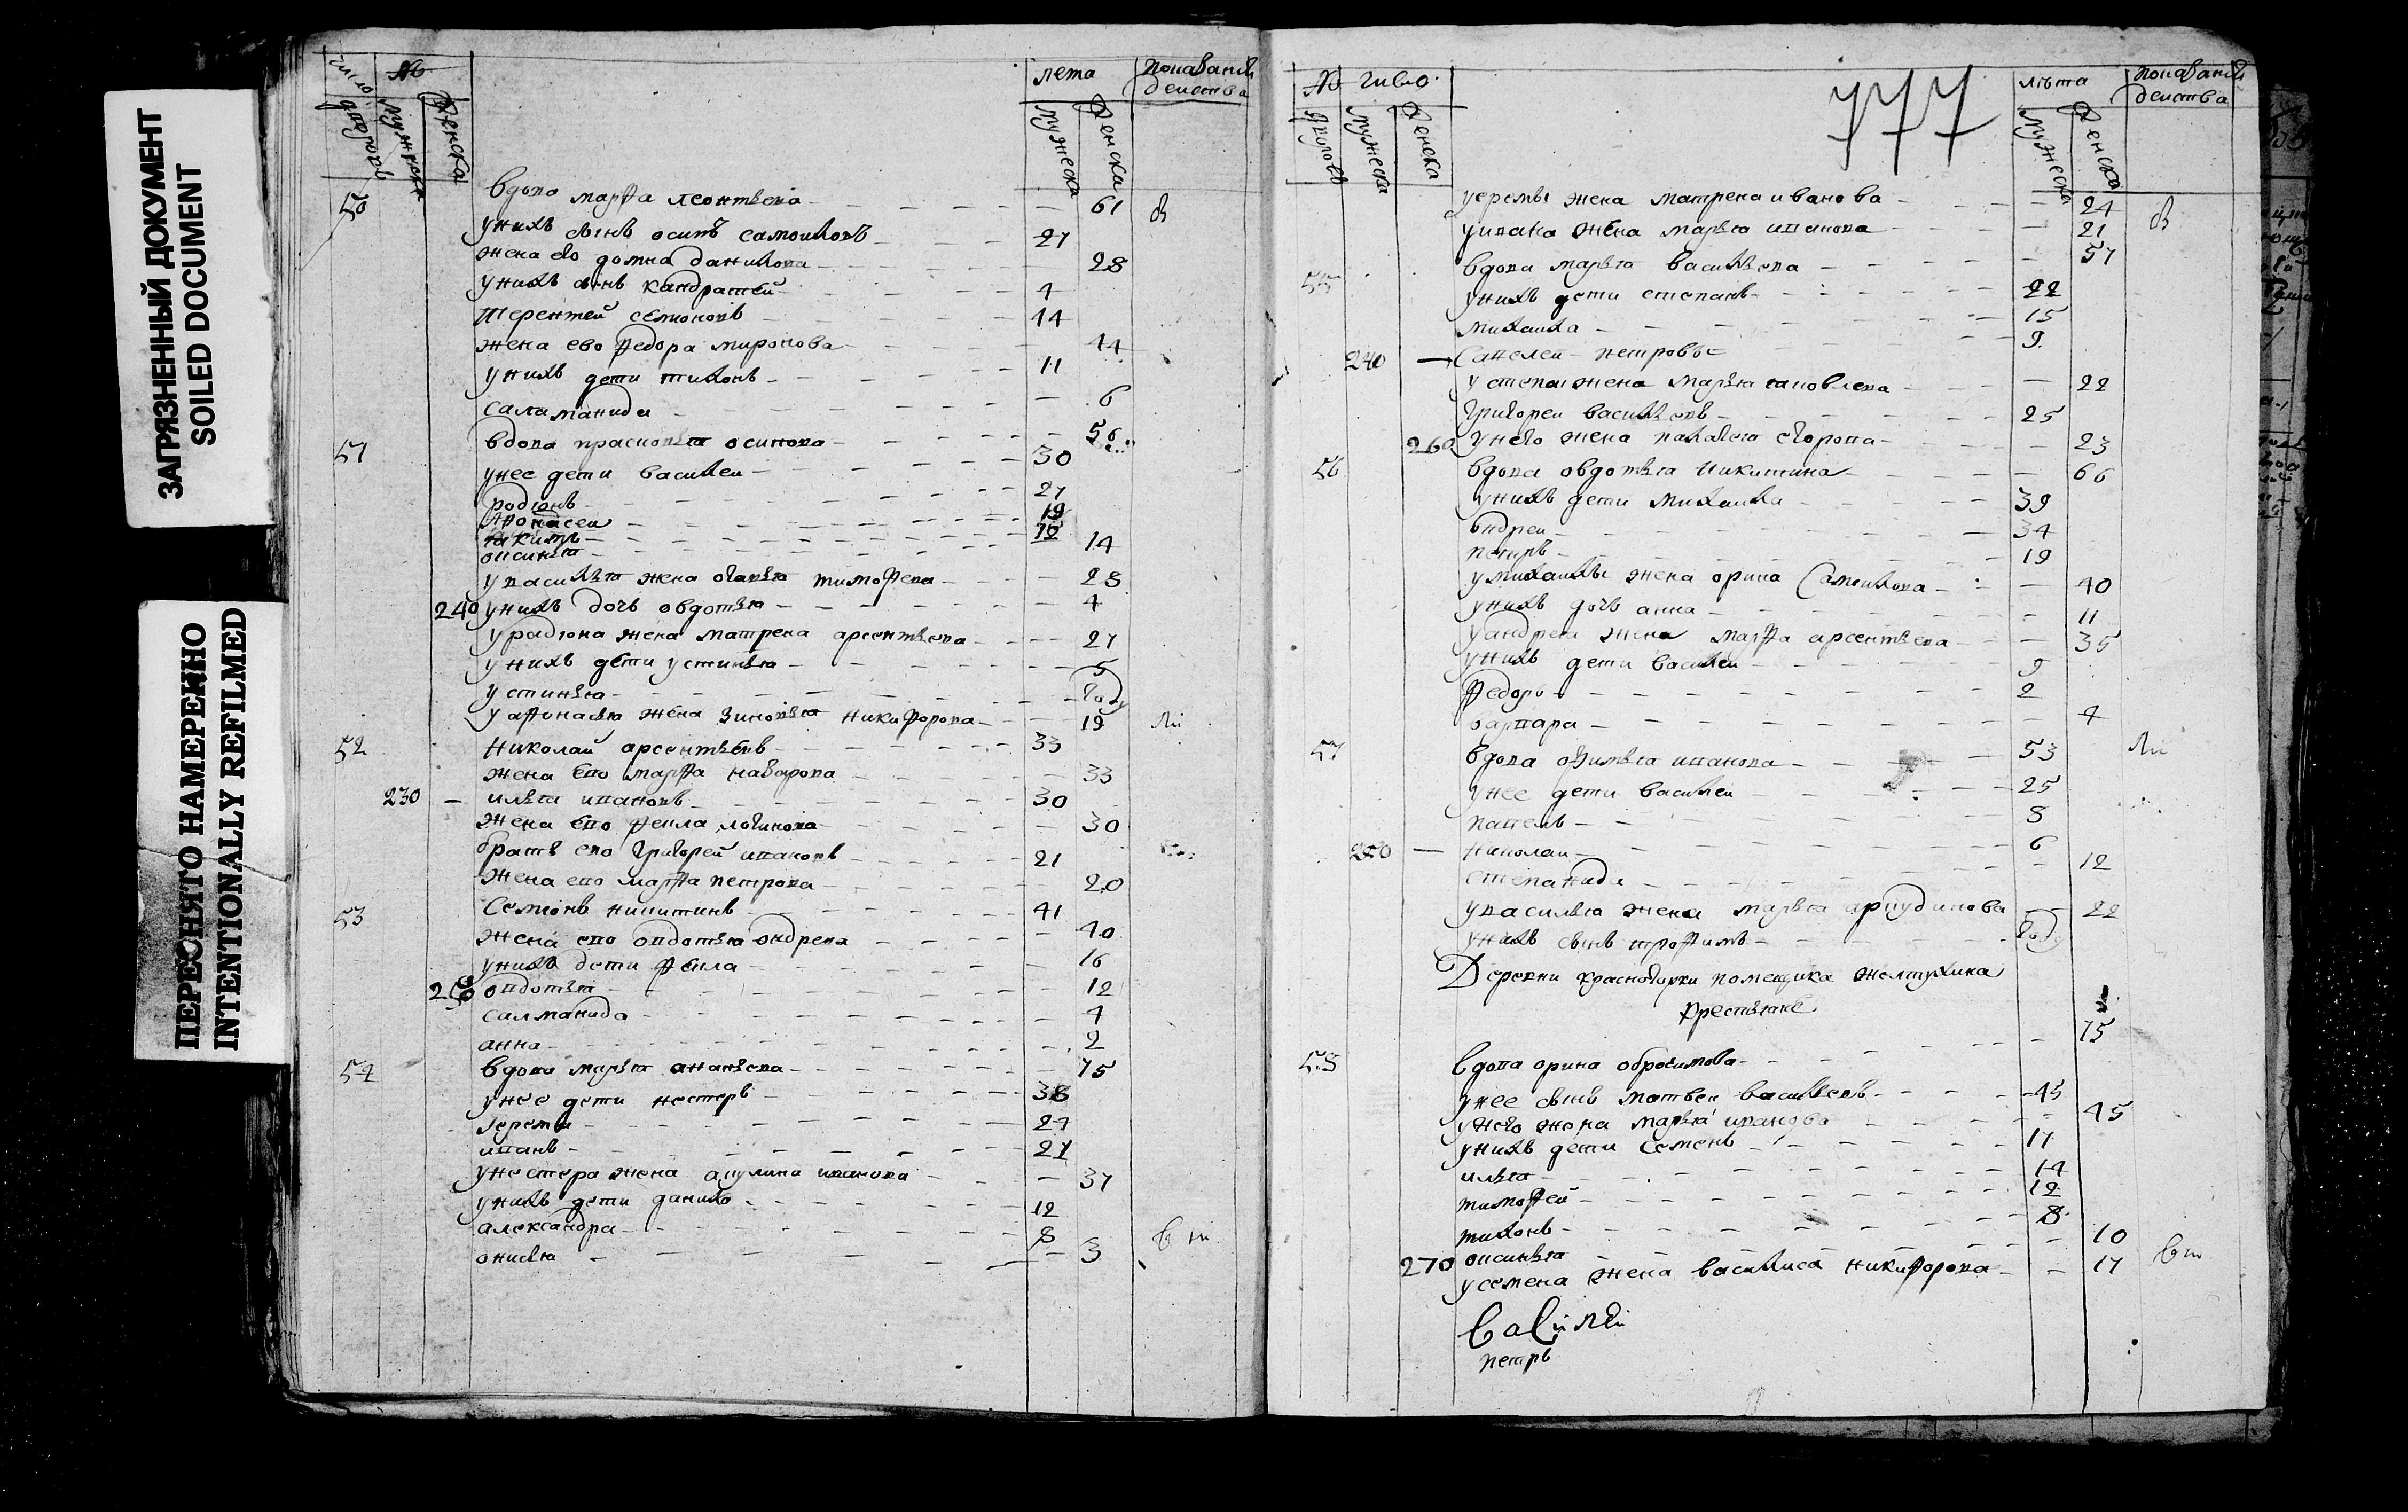 ЗАГРЯЗНЕННЫЙ ДОКУМЕНТ
SOILED DOCUMENT
ПЕРЕСНЯТО НАМЕРЕННО
INTENTIONALLY REFILMED
число № лета показание
дворовъ мужеска женска мужеска женска действа
50 вдова марфа леонтьева 61
у нихъ сынъ осипъ самоиловъ 27
жена ево домна данилова 28
у нихъ сынъ кандратей 4
терентей семионовъ 44
жена ево федора миронова 44
у нихъ дети тихонъ 11
саламанида 6
51 вдова прасковья осипова 56
у нее дети василеи 30
родионъ 27
афонасеи 19
якимъ
аксинья 14
у василья жена агафья тимофева 28
240 у нихъ дочь овдотья 4
у радиона жена матрена арсентьева 27
у нихъ дети устинья 5
устинья году
у афонасья жена зиновья никифорова 19
52 николаи арсентьевъ 33
жена ево марфа назарова 33
230 илья ивановъ 30
жена ево фекла логинова 30
братъ ево григорей ивановъ 21
жена ево марфа петрова 20
53 семионъ никитинъ 41
жена ево овдотья ондрева 40
у нихъ дети фекла 16
250 овдотья 12
салманида 4
анна 2
54 вдова марья ананьева 75
у нее дети нестеръ 38
ерема 27
иванъ 21
у нестера жена акулина иванова 37
у нихъ дети данило 12
александра 8
онисья 3
№ число 777 лѣта показание
дворовъ мужеска женска мужеска женска действа
у еремы жена матрена иванова 24
у ивана жена марья иванова 21
55 вдова марья васильева 57
у нихъ дети степанъ 22
михаила 15
240 савелеи петровы 9
у степана жена марья яковлева 22
григореи васильевъ 25
260 у нево жена палагея егорова 23
56 вдова овдотья никитина 66
у нихъ дети михаила 39
ондреи 34
петръ 19
у михаилы жена орина самоилова 40
у нихъ дочь анна 11
у андрея жена марфа арсентьева 35
у нихъ дети василеи 9
федоръ 2
варвара 4
57 вдова офимья иванова 53
у нее дети василеи 25
павелъ 8
250 николаи 6
степанида 12
у василья жена марья 22
у нихъ сынъ трофимъ году
Деревни красногорки помещика желтухина
крестьяне
58 вдова орина обросимова 75
у нее сынъ матвеи васильевъ 45
у него жена марья иванова 45
у нихъ дети семенъ 17
илья 14
тимофей 12
тихонъ 8
270 аксинья 10
у семена жена василиса никифорова 17
василеи
петръ